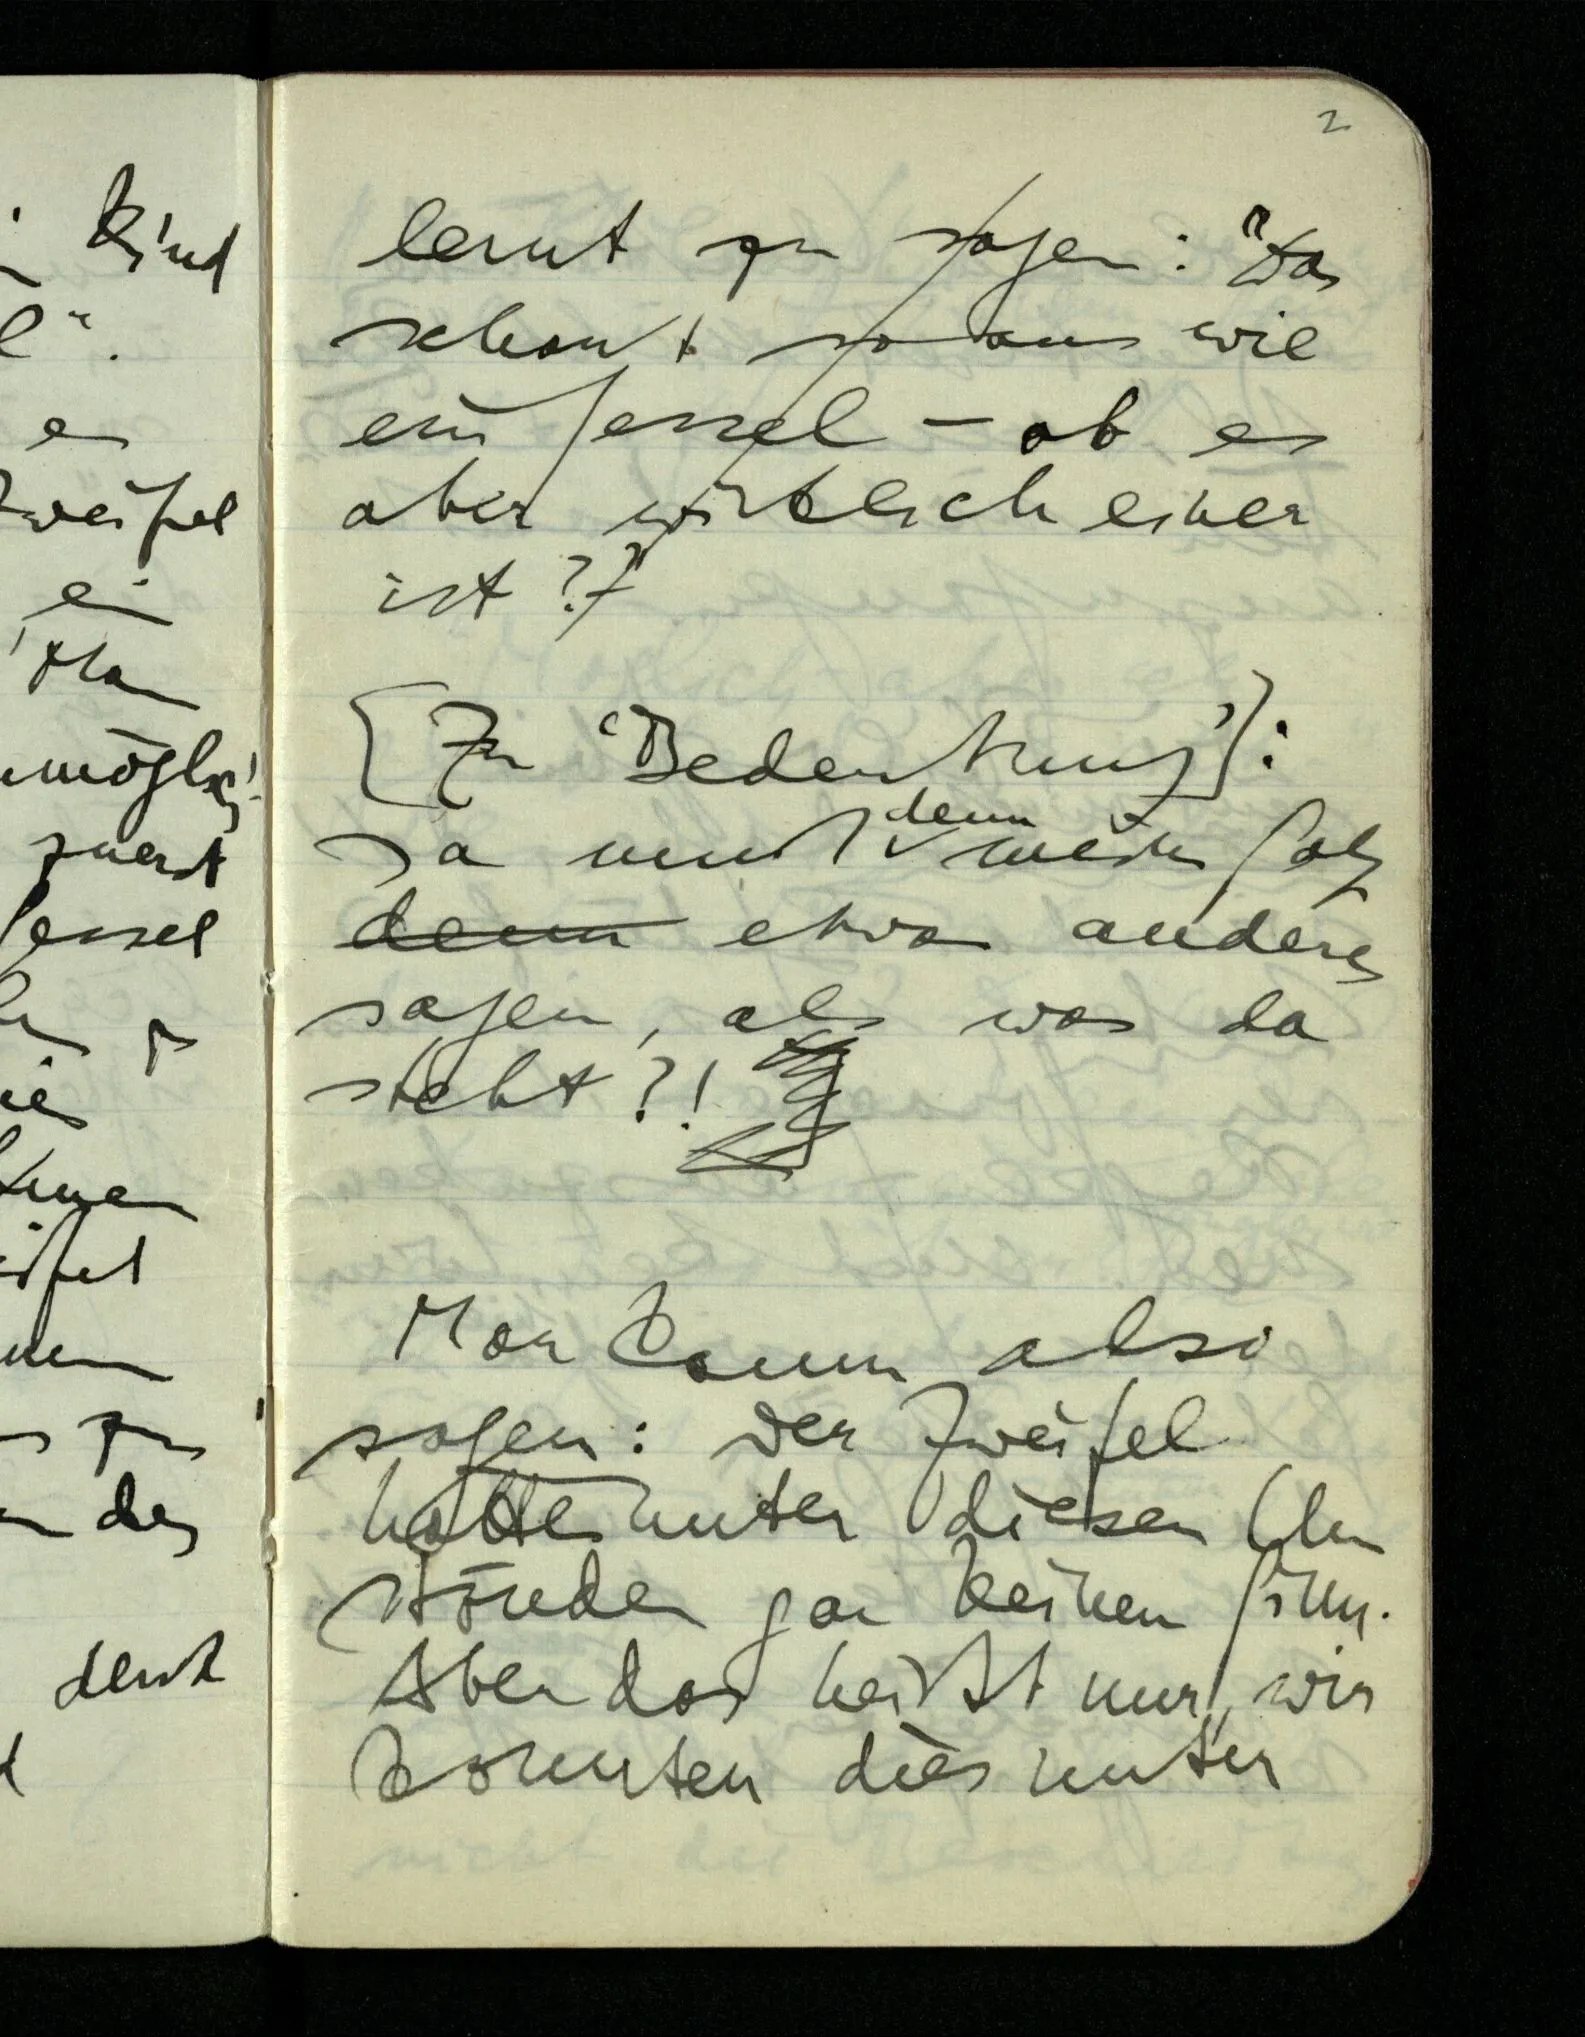 Kind
l".
er
Zweifel
ein
Man
möglich
zuerst
Sessel
zu
wie
ifel
den
lernt
2
lernt zu sagen: "Das
schaut so aus wie
ein Sessel – ob es
aber wirklich einer
ist?"
[Zu 'Bedeutung']:
Ja muß denn mein Satz
denn etwas anderes
sagen, als was da
steht?!
Man kann also
sagen: Der Zweifel
hätte unter diesen Um
ständen gar keinen Sinn.
Aber das heißt nur, wir
könnten dies unter